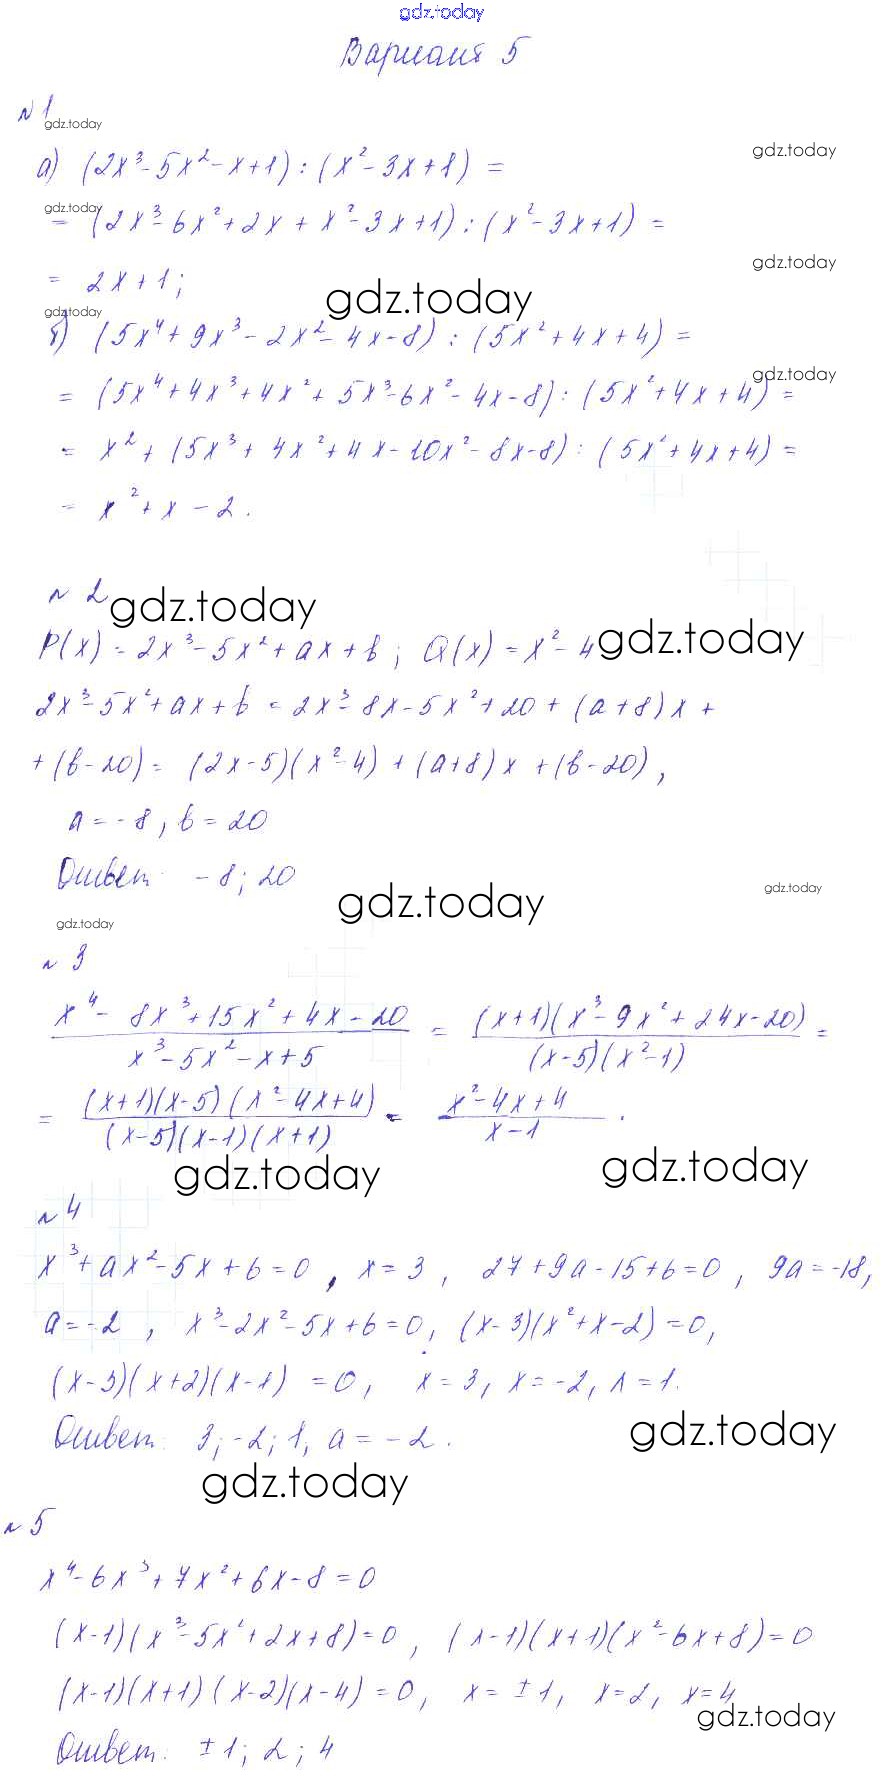 gdz.today
Вариант 5
№ 1
gdz.today
а) (2x³ - 5x² - x + 1) : (x² - 3x + 1) =
gdz.today
gdz.today
= (2x³ - 6x² + 2x + x² - 3x + 1) : (x² - 3x + 1) =
gdz.today
= 2x + 1;
gdz.today
gdz.today
б) (5x⁴ + 9x³ - 2x² - 4x - 8) : (5x² + 4x + 4) =
gdz.today
= (5x⁴ + 4x³ + 4x² + 5x³ - 6x² - 4x - 8) : (5x² + 4x + 4) =
= x² + (5x³ + 4x² + 4x - 10x² - 8x - 8) : (5x² + 4x + 4) =
= x² + x - 2.
№ 2
gdz.today
P(x) = 2x³ - 5x² + ax + b ; Q(x) = x² - 4
gdz.today
2x³ - 5x² + ax + b = 2x³ - 8x - 5x² + 20 + (a + 8) x +
+ (b - 20) = (2x - 5)(x² - 4) + (a + 8) x + (b - 20),
a = -8, b = 20
Ответ: -8; 20
gdz.today
gdz.today
gdz.today
№ 3
x⁴ - 8x³ + 15x² + 4x - 20 / x³ - 5x² - x + 5 = (x + 1)(x³ - 9x² + 24x - 20) / (x - 5)(x² - 1) =
= (x + 1)(x - 5)(x² - 4x + 4) / (x - 5)(x - 1)(x + 1) = x² - 4x + 4 / x - 1 .
gdz.today
gdz.today
№ 4
x³ + ax² - 5x + 6 = 0 , x = 3 , 27 + 9a - 15 + 6 = 0 , 9a = -18,
a = -2 , x³ - 2x² - 5x + 6 = 0, (x - 3)(x² + x - 2) = 0,
(x - 3)(x + 2)(x - 1) = 0, x = 3, x = -2, x = 1.
Ответ: 3; -2; 1, a = -2.
gdz.today
gdz.today
№ 5
x⁴ - 6x³ + 7x² + 6x - 8 = 0
(x - 1)(x³ - 5x² + 2x + 8) = 0, (x - 1)(x + 1)(x² - 6x + 8) = 0
(x - 1)(x + 1)(x - 2)(x - 4) = 0, x = ± 1, x = 2, x = 4
gdz.today
Ответ: ± 1; 2; 4